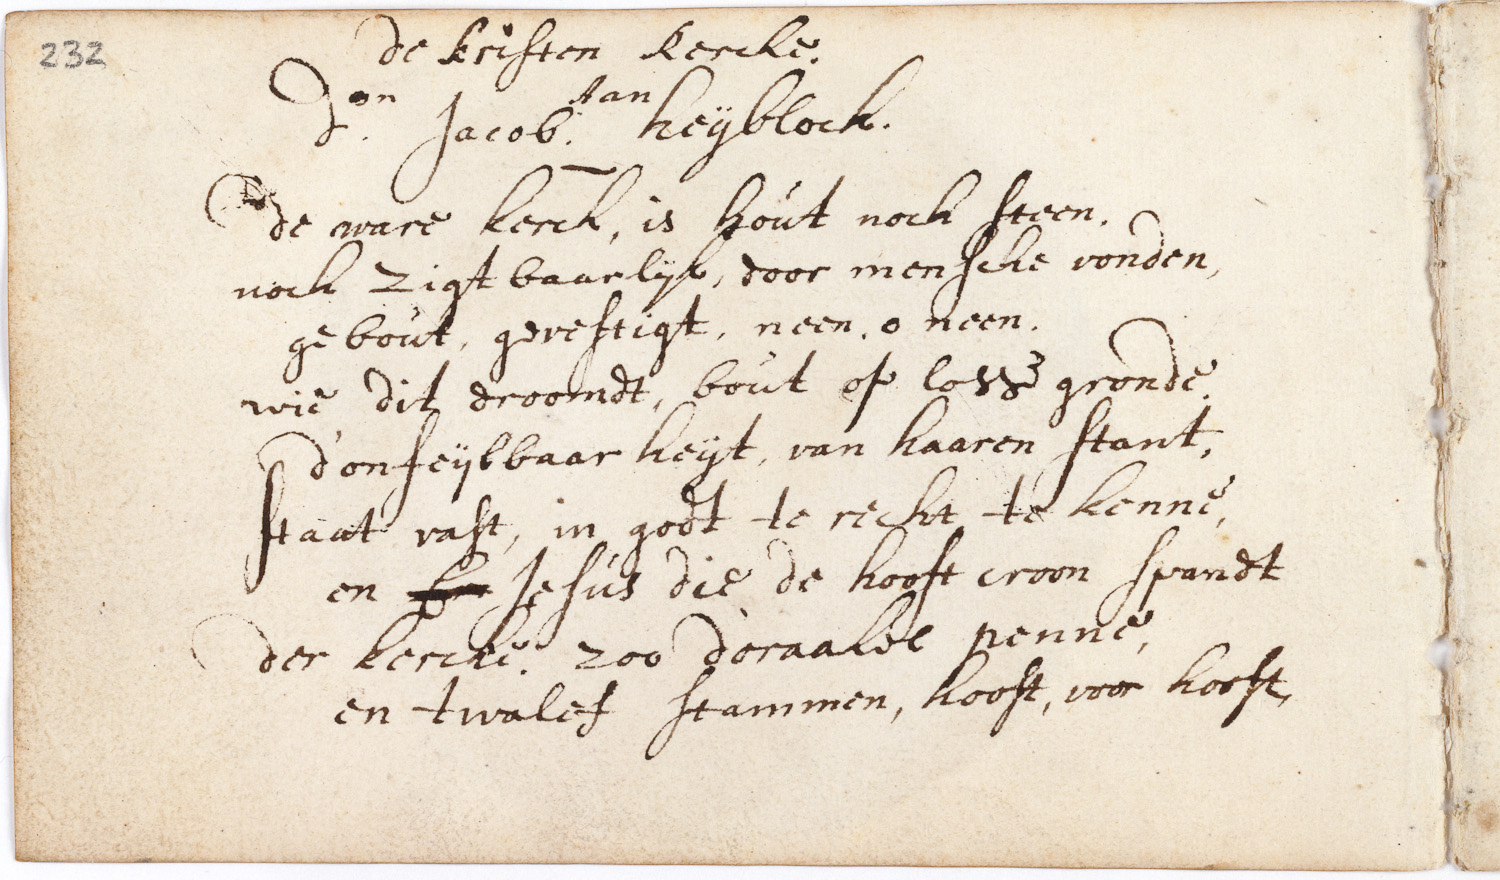 232
de kristen kerche.
aan
Dᵒⁿ. Jacob. heyblock.
de ware kerck, is hout noch steen.
noch zigtbaarlyk, door mensche vonden,
gebout, gevestigt, neen, o neen.
wie dit droomdt, bout op losse gronde.
d'onfeylbaarheyt, van haaren stant,
staat vast, in godt te recht te kenne,
en Jesus die de hooft croon spandt
der kercke. zoo d'oraakel penne,
en twalef stammen, hooft, voor hooft,